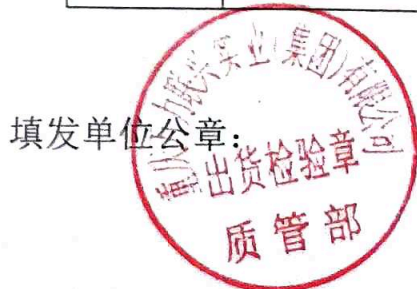 填发单位公章:
实业(集团)有限公司
出货检验章
质管部